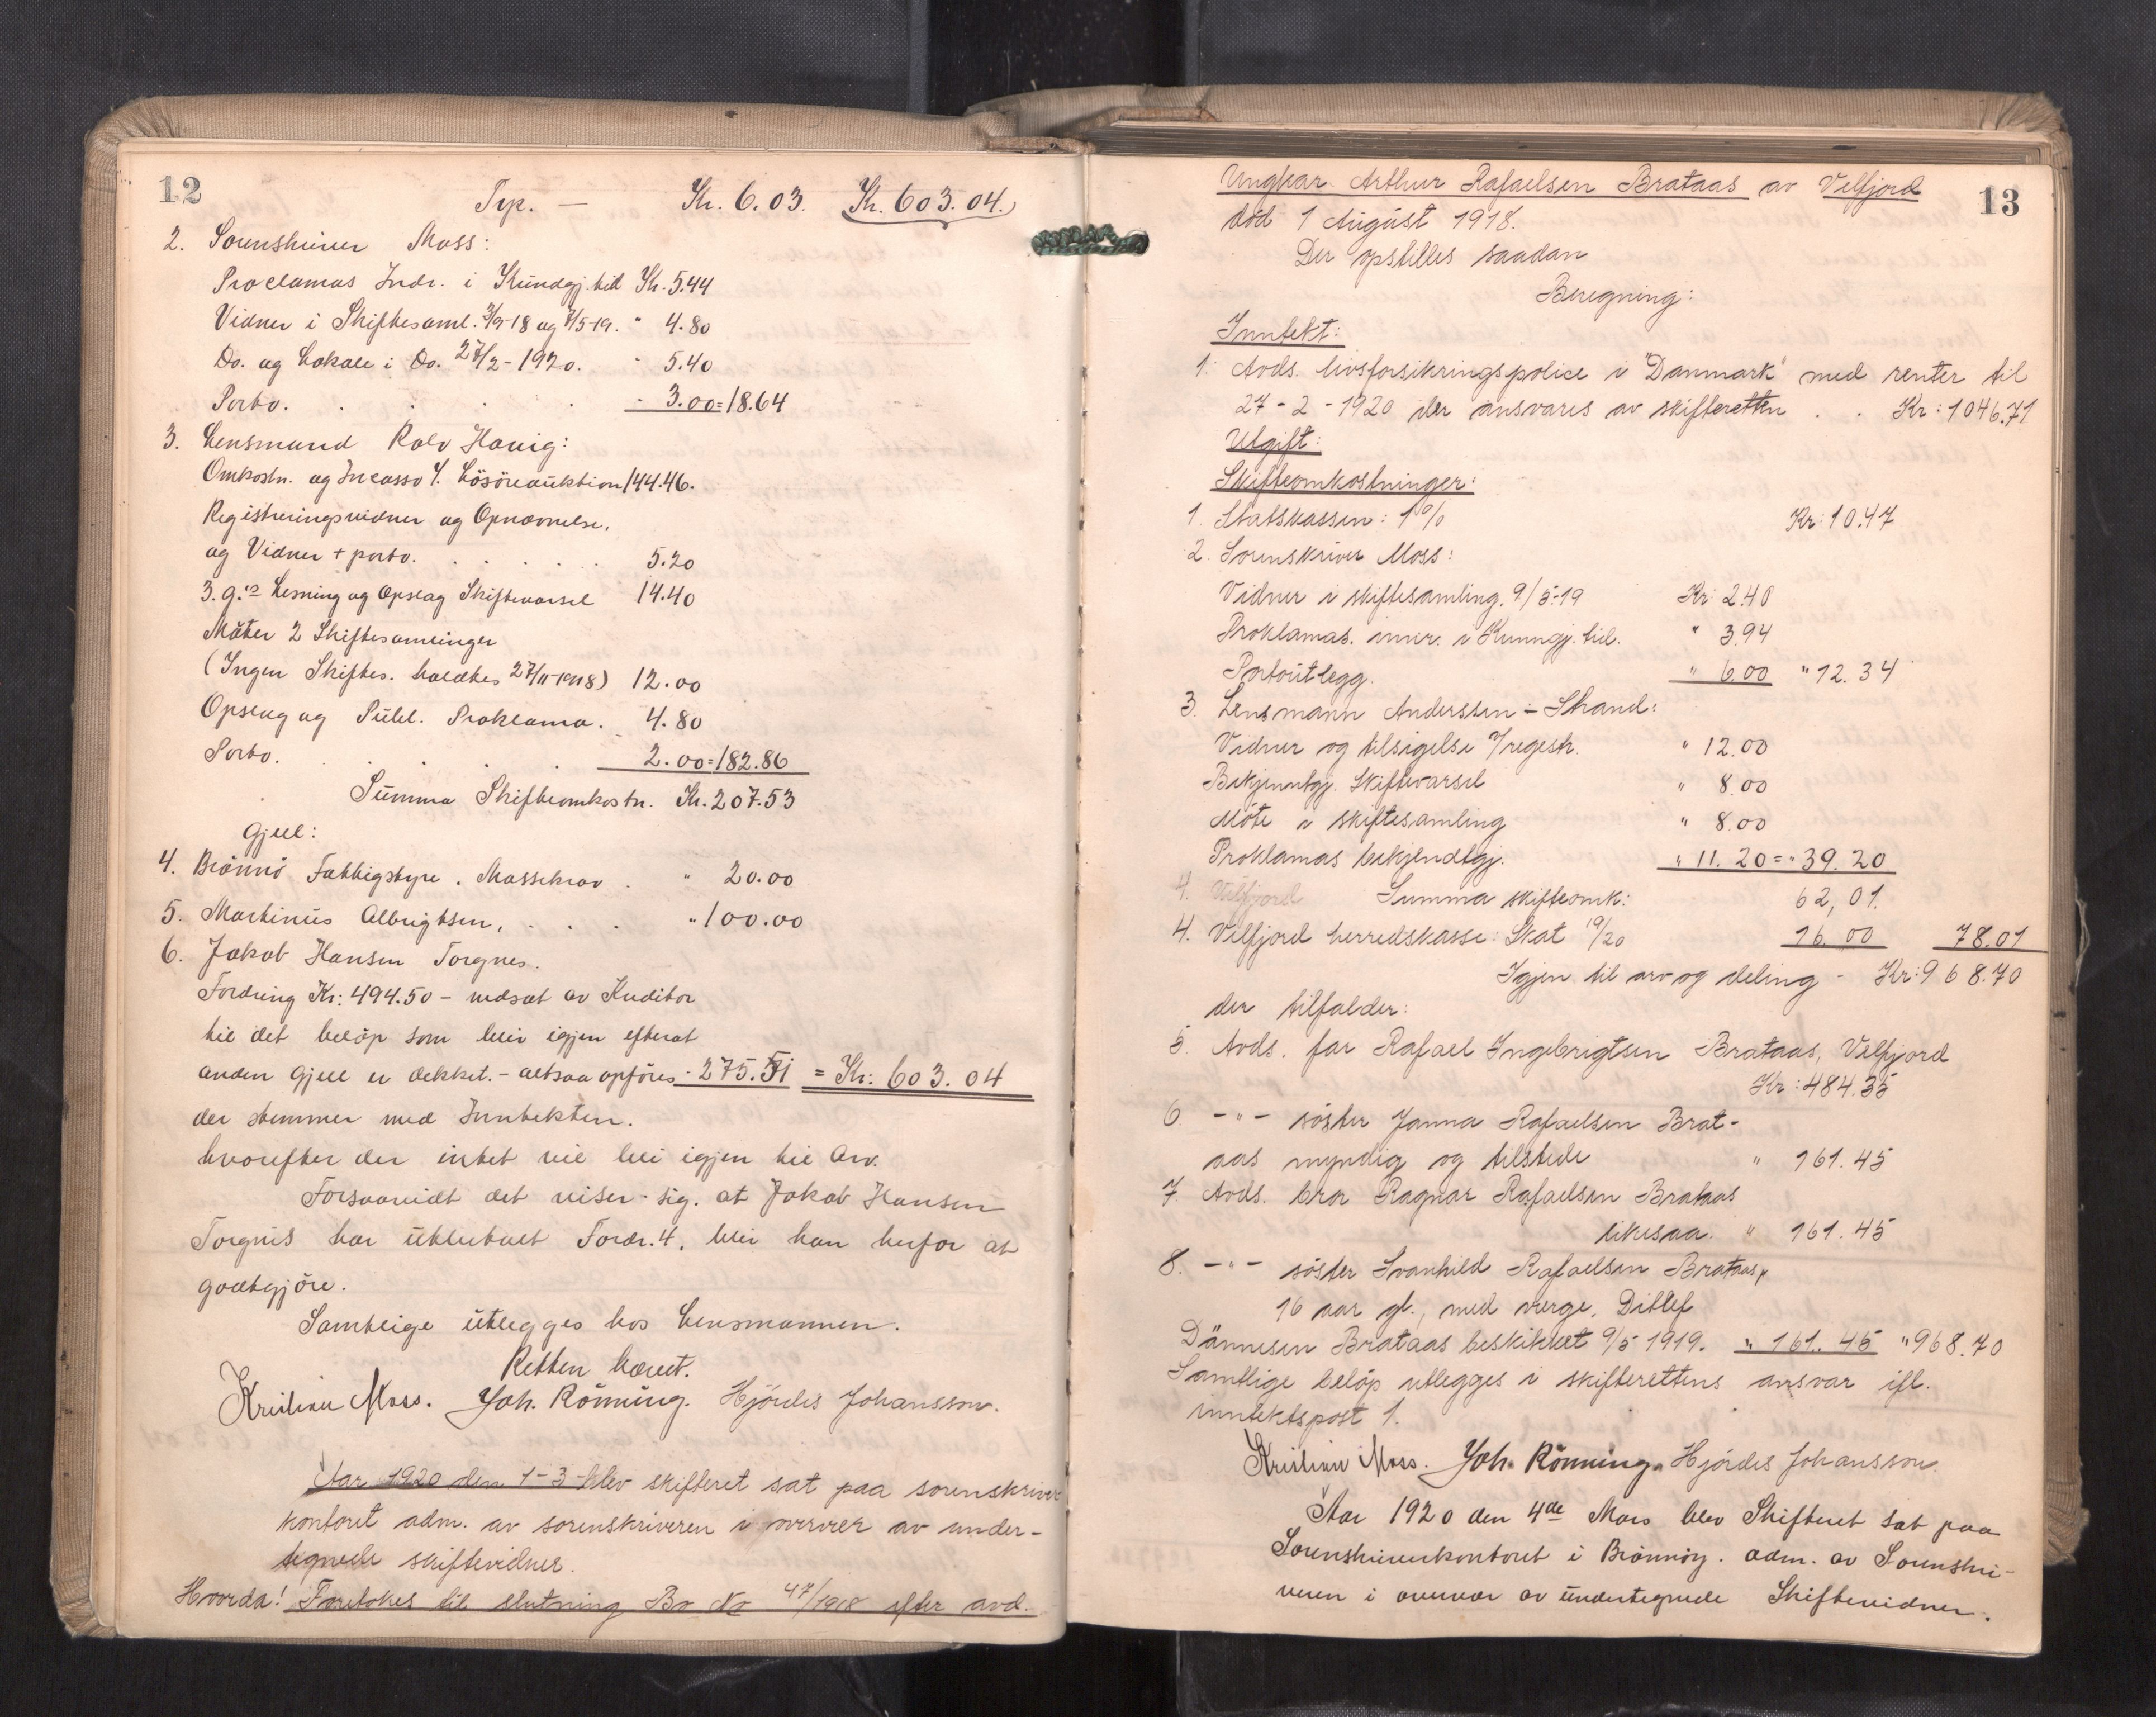 12
Trp. — Kr. 6.03. Kr. 603.04.
2. Sorenskriver Moss:
Proclamas Indr. i Kundgj. tid Kr. 5.44
Vidner i Skiftesaml. 3/9-18 og 9/5-19. " 4.80
Do. og Lokale i Do. 27/2-1920. " 5.40
Porto. . . . . " 3.00 = 18.64
3. Lensmand Rolv Havig:
Omkostn. og Incasso f. Lösöreauktion 144.46.
Registreringsvidner og Opnævnelse,
og Vidner + porto. . . . . . 5.20
3. g. Lesning og Opslag Skiftevarsel 14.40
Möter 2 Skiftesamlinger
(Ingen Skiftes. holdtes 27/11-1918) 12.00
Opslag og Publ. Proklama. 4.80
Porto. . . . . 2.00 = 182.86
Summa Skifteomkostn. Kr. 207.53
Gjeld:
4. Brönnö Fattigstyre. Massekrav . " 20.00
5. Martinus Albrigtsen, . . . " 100.00
6. Jakob Hansen Torgnes.
Fordring Kr: 494.50 – nedsat av Kreditor
til det belöp som blir igjen efterat
anden Gjeld er dekket. – altsaa opföres - 275.51 = Kr: 603.04
der stemmer med Inntekten.
hvorefter der intet vil bli igjen til Arv.
Forsaavidt det viser sig. at Jakob Hansen
Torgnes har utbetalt Fordr. 4, blir han herfor at
godtgjöre.
Samtlige utlegges hos lensmannen.
Retten hævet.
Kristian Moss. Joh. Rönning. Hjördis Johansson.
Aar 1920 den 1-3- blev skifteret sat paa sorenskriver
kontoret adm. av sorenskriveren i overvær av under-
tegnede skiftevidner.
Hvorda! Foretokes til slutning Bo No 47/1918 efter avd.
13
Ungkar Arthur Rafaelsen Brataas av Velfjord
död 1 August 1918.
Der opstilles saadan
Beregning:
Inntekt:
1. Avds. livsforsikringspolice i "Danmark" med renter til
27-2-1920 der ansvares av skifteretten . . Kr: 1046.71
Utgift:
Skifteomkostninger:
1. Statskassen: 1% Kr: 10.47
2. Sorenskriver Moss:
Vidner i skiftesamling. 9/5-19 Kr: 2.40
Proklamas. innr. i Kunngj. tid. " 3.94
Portoutlegg. " 6.00 " 12.34
3. Lensmann Anderssen-Strand:
Vidner og tilsigelse f/registr. " 12.00
Bekjenntgj. Skiftevarsel " 8.00
Möte i skiftesamling " 8.00
Proklamas bekjendtgj. " 11.20 = " 39.20
4. Velfjord Summa skifteomk: 62,01.
4. Velfjord herredskasse: Skat 19/20 16.00 78.01
Igjen til arv og deling - Kr: 968.70
der tilfalder:
5. Avds. far Rafael Ingebrigtsen Brataas, Velfjord
Kr: 484.35
6. -"- söster Janna Rafaelsen Brat-
aas myndig og tilstede " 161.45
7. Avds. bror Ragnar Rafaelsen Brataas
likesaa. " 161.45
8. -"- söster Svanhild Rafaelsen Brataas,
16 aar gl., med verge, Ditlef
Dännesen Brataas beskikket 9/5 1919. " 161.45 " 968.70
Samtlige belöp utlegges i skifterettens ansvar ifl.
inntektspost 1.
Kristian Moss. Joh. Rönning. Hjördis Johansson.
Aar 1920 den 4de Mars blev Skifteret sat paa
Sorenskriverkontoret i Brönnöy. adm. av Sorenskri-
veren i overvær av undertegnede Skiftevidner.